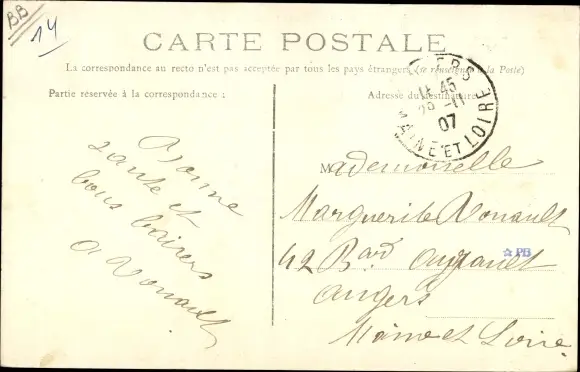 BB
14
CARTE POSTALE
La correspondance au recto n'est pas acceptée par tous les pays étrangers (se renseigner à la Poste)
Partie réservée à la correspondance :
Adresse du destinataire
11 45
07
MAINE ET LOIRE
Bonne
santé et
bons baisers
Mademoiselle
Marguerite
42 Bard
Angers
Maine et Loire
PB